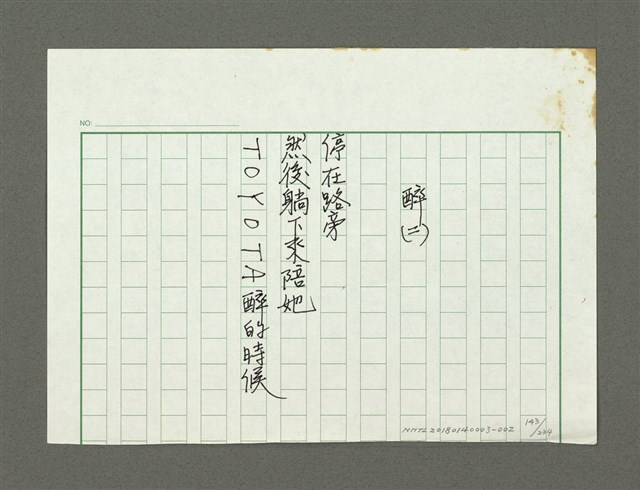 NO:
醉(二)
停在路旁
然後躺下來陪她
TOYOTA醉的時候
NMTL20180140003-002
143/284